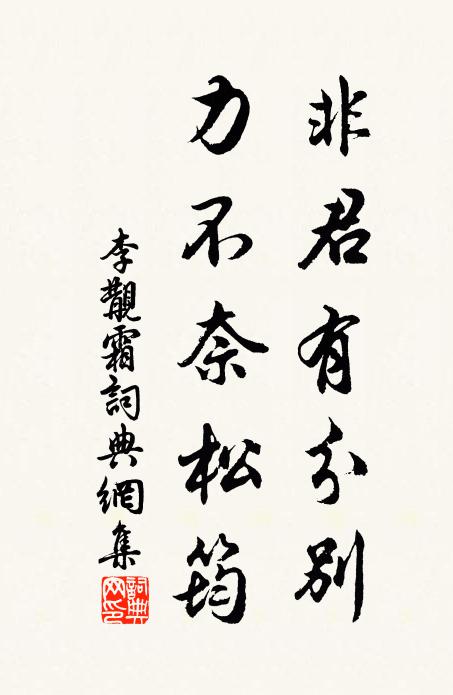 非君有分别
力不奈松筠
李觀霜詞典網集
詞典网印